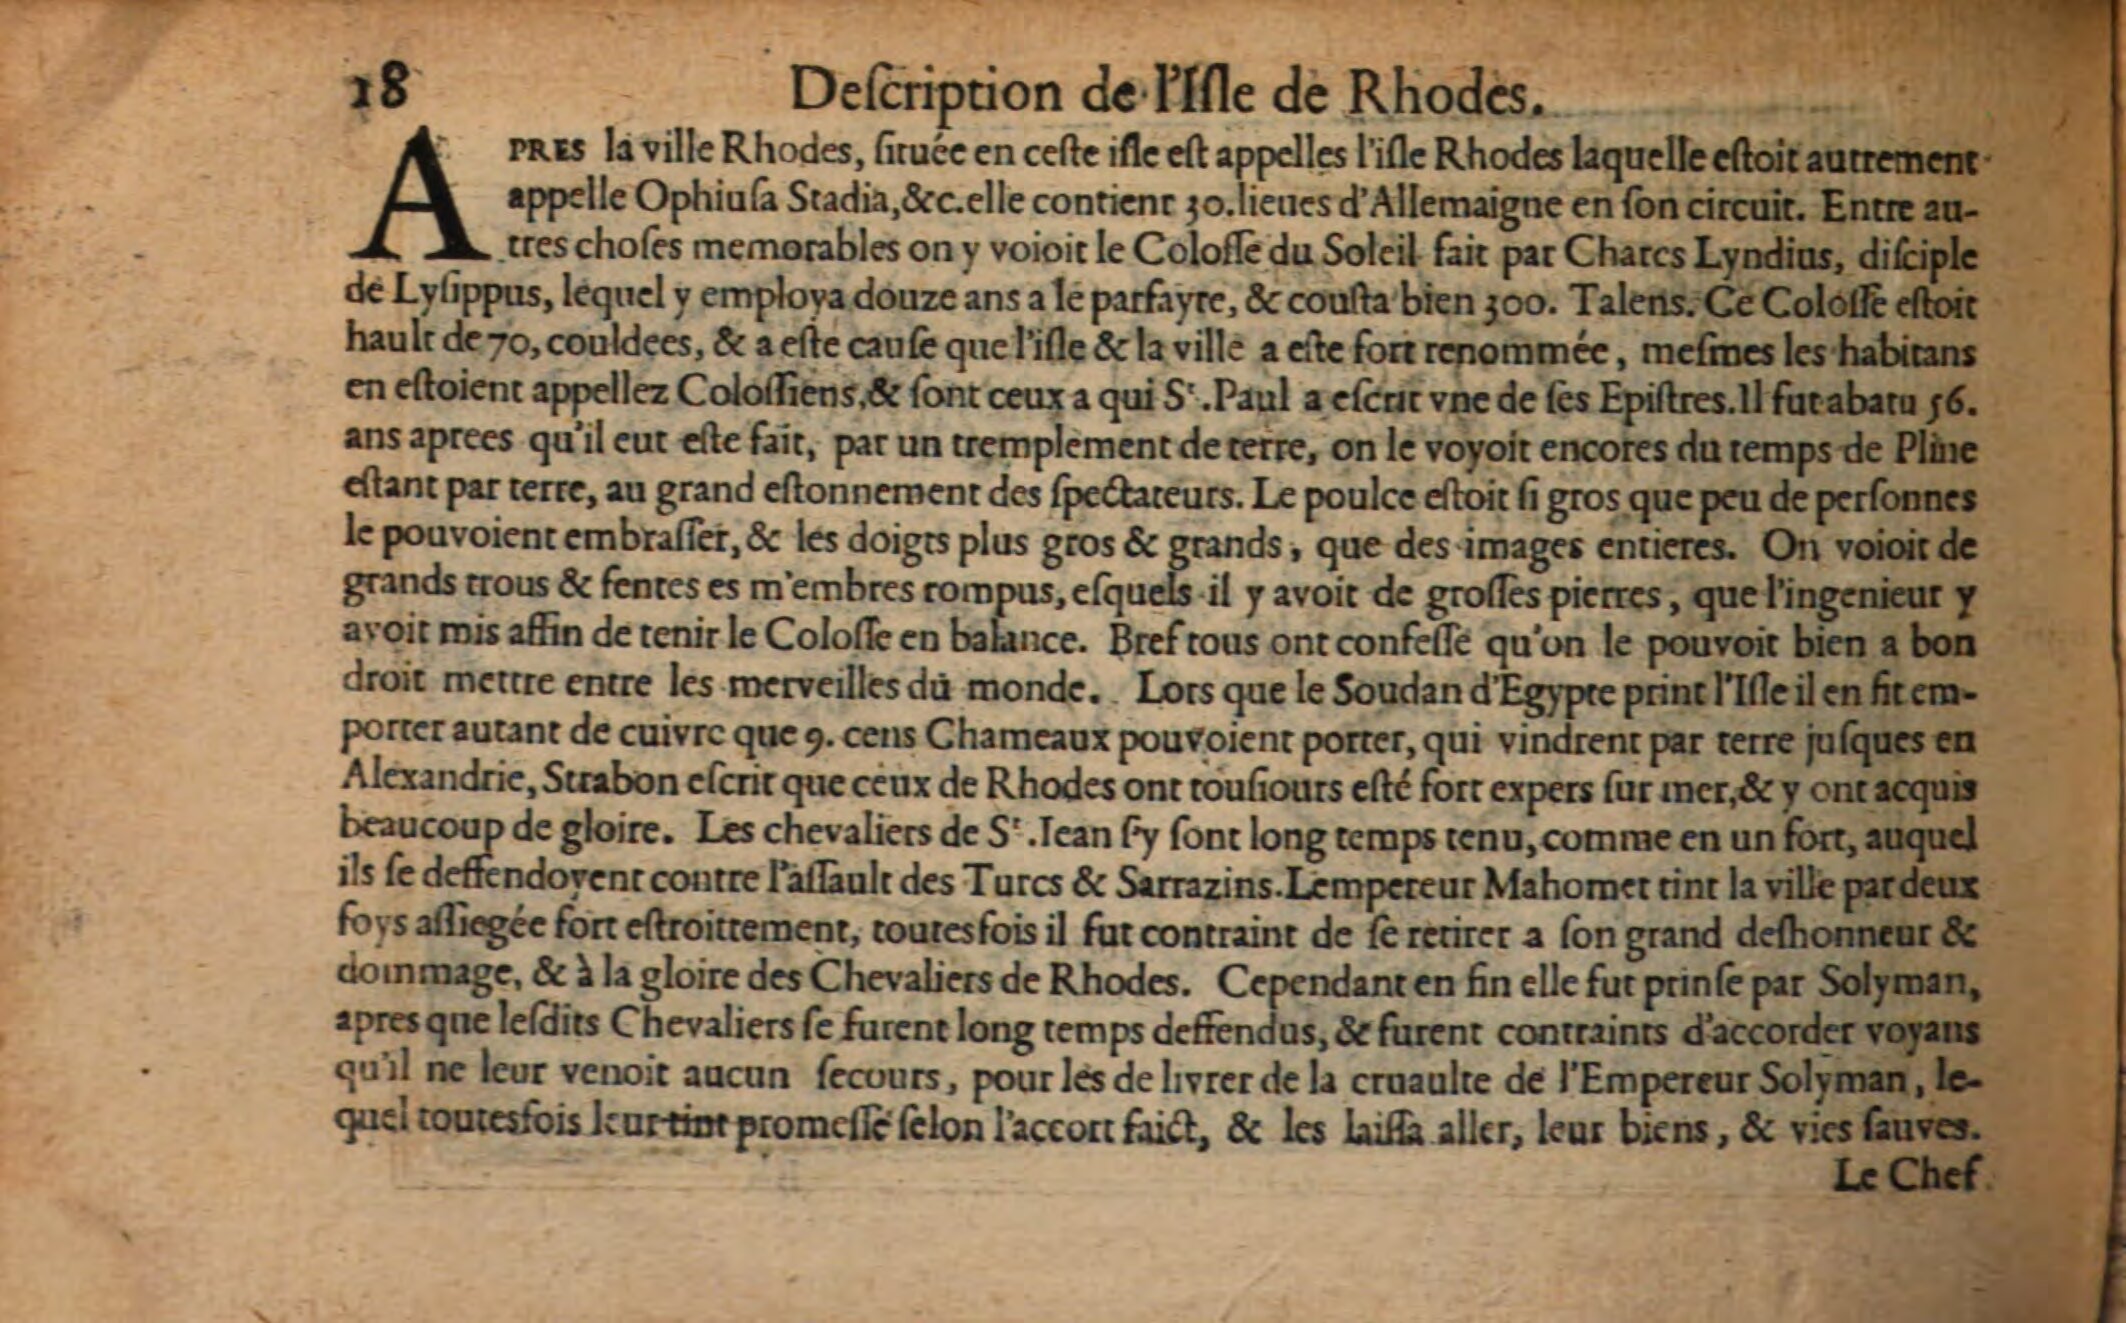 18 Deſcription de l'Iſle de Rhodes.
APRES la ville Rhodes, ſituée en ceſte iſle eſt appelles l'iſle Rhodes laquelle eſtoit autrement
appelle Ophiuſa Stadia, &c. elle contient 30. lieues d'Allemaigne en ſon circuit. Entre au-
tres choſes memorables on y voioit le Coloſſe du Soleil fait par Chares Lyndius, diſciple
de Lyſippus, lequel y employa douze ans a le parfayre, & couſta bien 300. Talens. Ce Coloſſe eſtoit
hault de 70, couldees, & a eſte cauſe que l'iſle & la ville a eſte fort renommée, meſmes les habitans
en eſtoient appellez Coloſſiens, & ſont ceux a qui Sᵗ. Paul a eſcrit vne de ſes Epiſtres. Il fut abatu 56.
ans aprees qu'il eut eſte fait, par un tremplement de terre, on le voyoit encores du temps de Pline
eſtant par terre, au grand eſtonnement des ſpectateurs. Le poulce eſtoit ſi gros que peu de perſonnes
le pouvoient embraſſer, & les doigts plus gros & grands, que des images entieres. On voioit de
grands trous & fentes es m'embres rompus, eſquels il y avoit de groſſes pierres, que l'ingenieur y
avoit mis affin de tenir le Coloſſe en balance. Bref tous ont confeſſé qu'on le pouvoit bien a bon
droit mettre entre les merveilles du monde. Lors que le Soudan d'Egypte print l'Iſle il en fit em-
porter autant de cuivre que 9. cens Chameaux pouvoient porter, qui vindrent par terre juſques en
Alexandrie, Strabon eſcrit que ceux de Rhodes ont touſiours eſté fort expers ſur mer, & y ont acquis
beaucoup de gloire. Les chevaliers de Sᵗ. Iean ſ'y ſont long temps tenu, comme en un fort, auquel
ils ſe deffendoyent contre l'aſſault des Turcs & Sarrazins. Lempereur Mahomet tint la ville par deux
foys aſſiegée fort eſtroittement, toutesfois il fut contraint de ſe retirer a ſon grand deſhonneur &
dommage, & à la gloire des Chevaliers de Rhodes. Cependant en fin elle fut prinſe par Solyman,
apres que leſdits Chevaliers ſe furent long temps deffendus, & furent contraints d'accorder voyans
qu'il ne leur venoit aucun ſecours, pour les de livrer de la cruaulte de l'Empereur Solyman, le-
quel toutesfois leur tint promeſſe ſelon l'accort faict, & les laiſſa aller, leur biens, & vies ſauves.
Le Chef